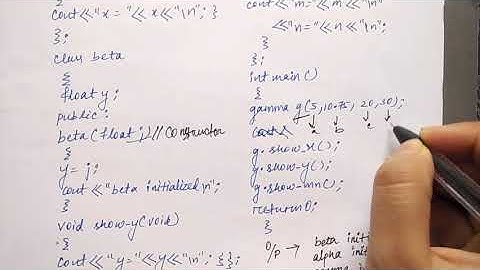 cout<<"x = "<<x<<"\n"; }
};
class beta
{
float y;
public:
beta(float j) // Constructor
{
y = j;
cout<<"beta initialized\n";
}
void show_y(void)
{
cout<<"y="<<y<<"\n"; }};
cout<<"m="<<m<<"\n"
<<"n="<<n<<"\n";
}
};
int main()
{
gamma g(5, 10.75, 20, 30);
a b c
g.show_x();
g.show_y();
g.show_mn();
return 0;
}
O/P → beta initi
alpha init